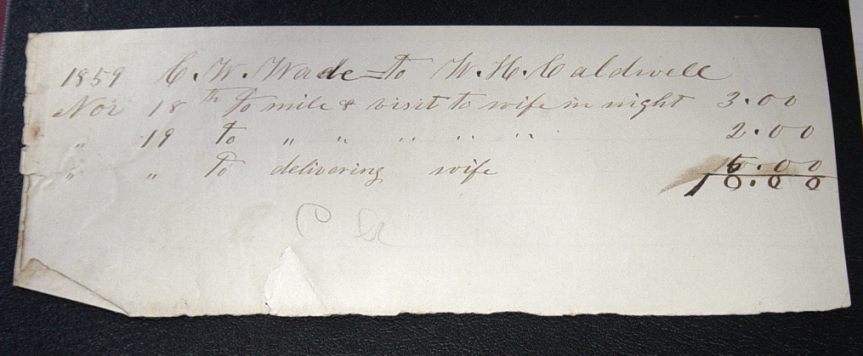 1859 C. W. Wade = to W. H. Caldwell
Nov 18th To mile & visit to wife in night 3.00
" 19 to " " " " " 2.00
" " To delivering wife 5.00
10.00